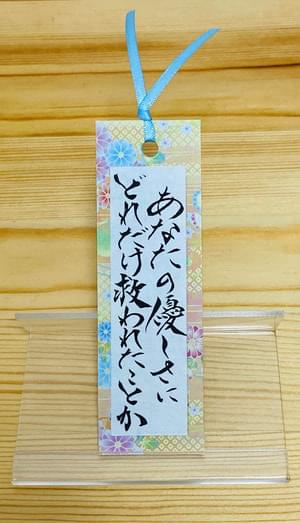 あなたの優しさに
どれだけ救われたことか